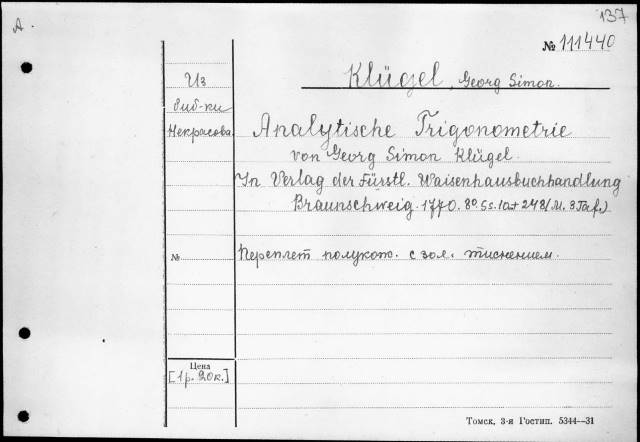 137
A.
№ 111440
Klügel, Georg Simon.
Из
биб-ки
Некрасова
Analytische Trigonometrie
von Georg Simon Klügel.
In Verlag der Fürstl. Waisenhausbuchhandlung
Braunschweig. 1770. 8° Ss. 10+248 (M. 3 Taf.)
№ Переплет полукож. с зол. тиснением.
Цена
[1 р. 20 к.]
Томск, 3-я Гостип. 5344—31